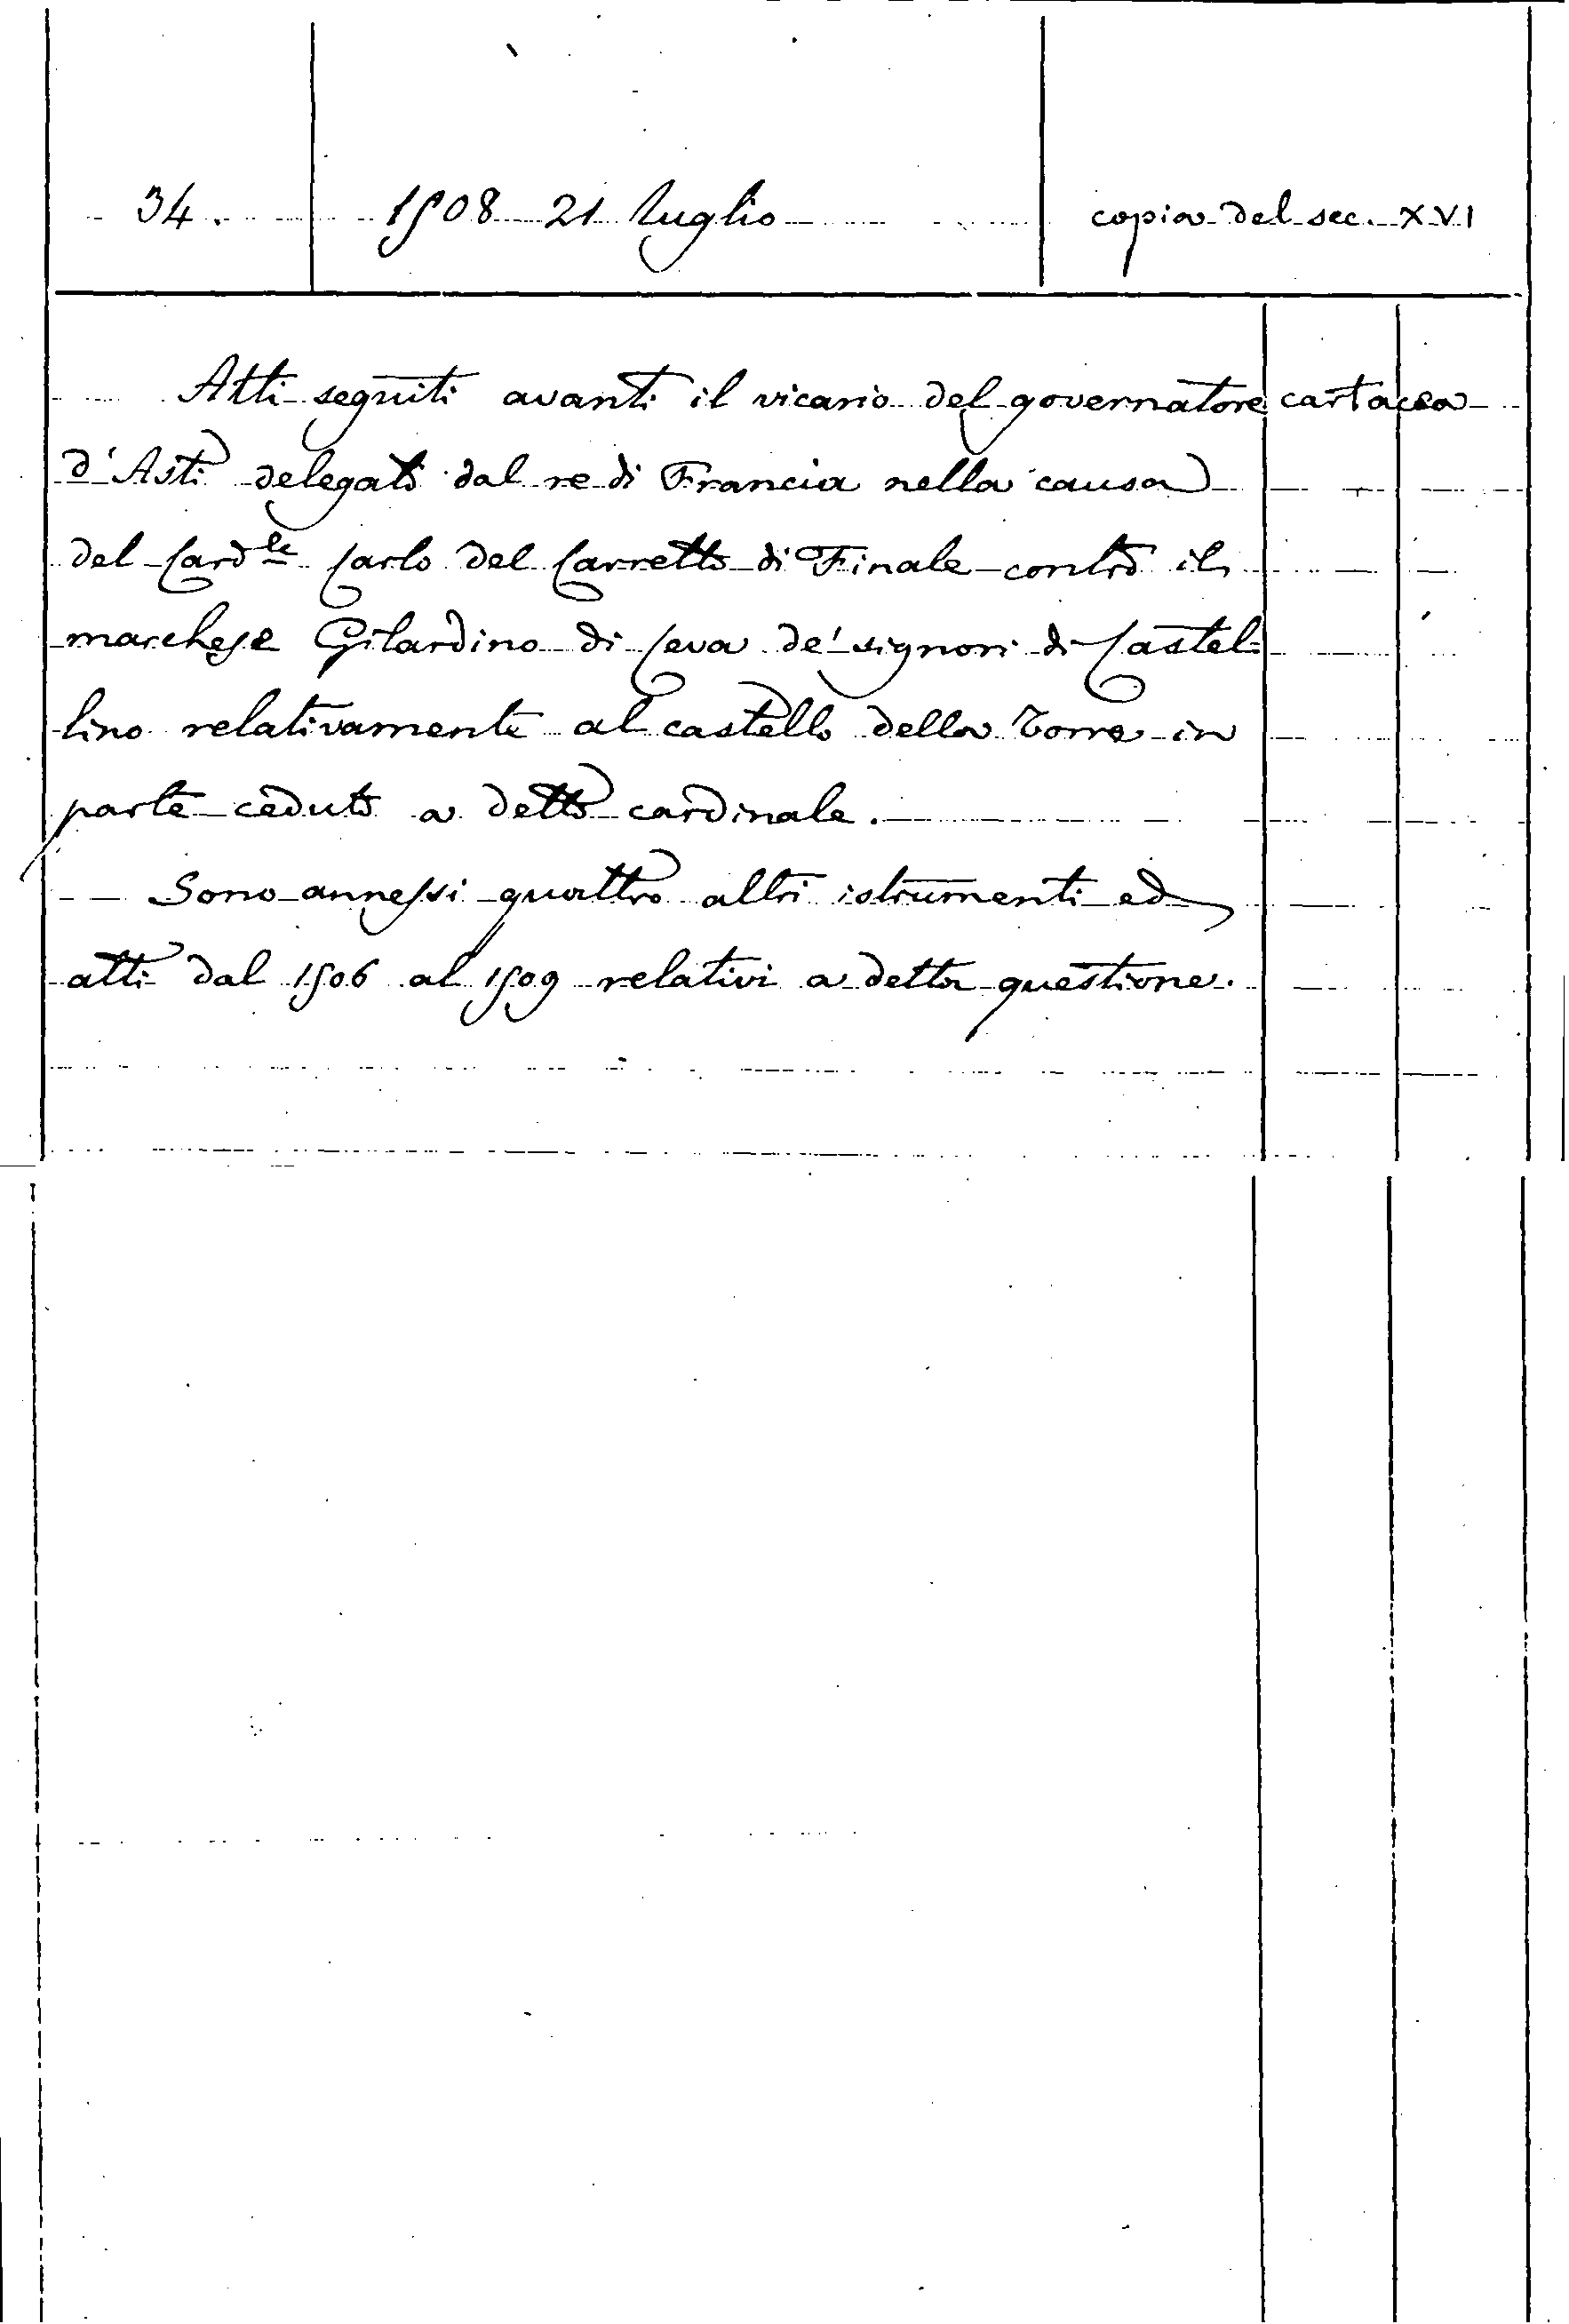 34. 1508 21 luglio copia del sec. XVI
Atti seguiti avanti il vicario del governatore cartacea
d'Asti delegato dal re di Francia nella causa
del Card.le Carlo del Carretto di Finale contro il
marchese Gilardino di Ceva de' signori di Castel-
lino relativamente al castello della Torre in
parte ceduto a detto cardinale.
Sono annessi quattro altri istrumenti ed
atti dal 1506 al 1509 relativi a detta questione.